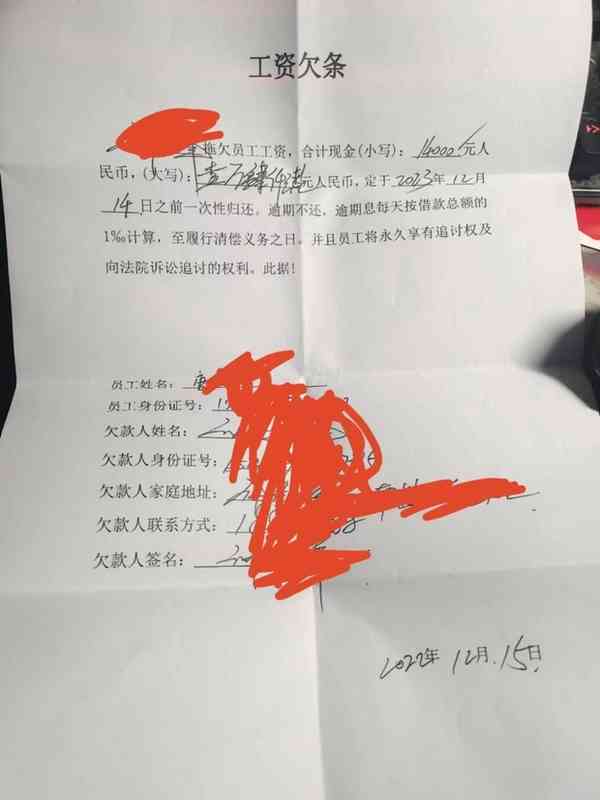 工资欠条
拖欠员工工资，合计现金(小写)：14000元人
民币，(大写)：壹万肆仟元人民币，定于2023年12月
14日之前一次性归还。逾期不还，逾期息每天按借款总额的
1‰计算，至履行清偿义务之日。并且员工将永久享有追讨权及
向法院诉讼追讨的权利。此据!
员工姓名：唐
员工身份证号：
欠款人姓名：
欠款人身份证号：
欠款人家庭地址：
欠款人联系方式：1
欠款人签名：
2022年12月.15日